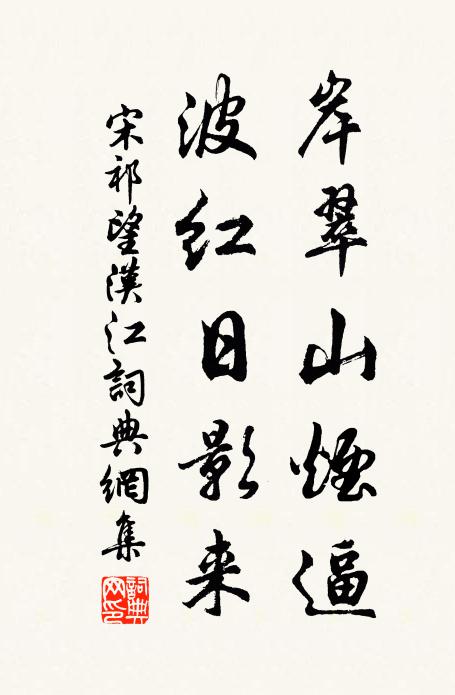 岸翠山煙逼
波紅日影来
宋祁望漢江詞典網集
詞典网印